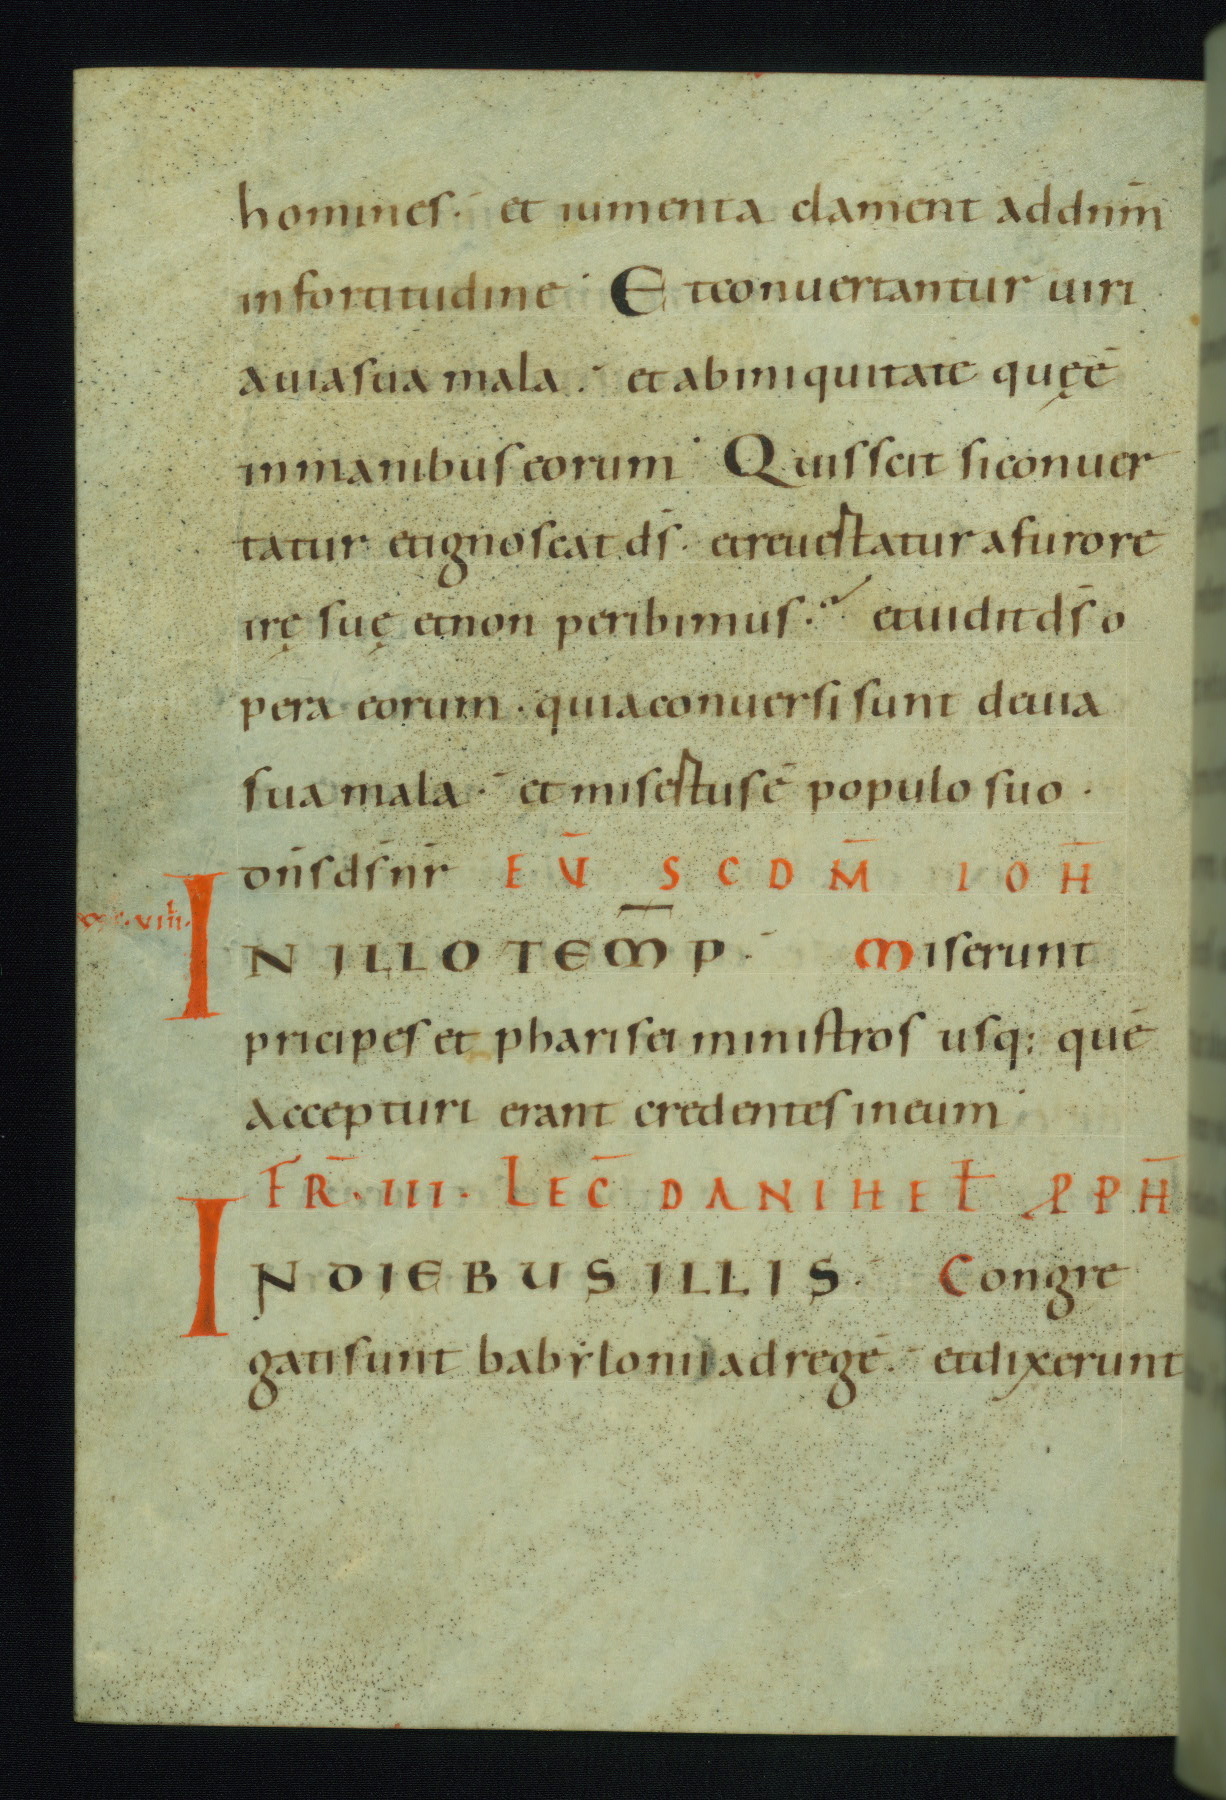 homines· et iumenta clament ad dn̄m
in fortitudine· Et conuertantur uiri
a uia sua mala· et ab iniquitate quę ē
in manibus eorum· Quis scit si conuer
tatur et ignoscat ds̄· et reuertatur a furore
irę suę et non peribimus· et uidit ds̄ o
pera eorum· quia conuersi sunt de uia
sua mala· et misertus ē populo suo·
dn̄s ds̄ nr̄ EV̄ SCDM̄ IOH̄
IN ILLO TEM̄P· Miserunt
pricipes et pharisei ministros usq: quē
accepturi erant credentes in eum
FR̄· III· LEC̄ DANIHEL̄ PPH̄
IN DIEBUS ILLIS· Congre
gati sunt babylonii ad regē· et dixerunt